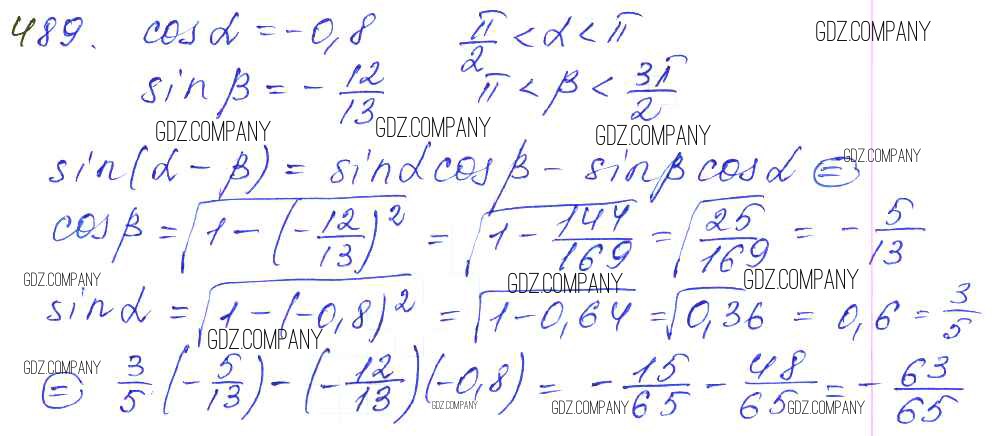 489. cos α = -0,8   π/2 < α < π   GDZ.COMPANY
sin β = - 12/13   π < β < 3π/2
GDZ.COMPANY GDZ.COMPANY GDZ.COMPANY
sin(α - β) = sin α cos β - sin β cos α ⊜ GDZ.COMPANY
cos β = √(1 - (-12/13)²) = √(1 - 144/169) = √(25/169) = - 5/13
GDZ.COMPANY GDZ.COMPANY GDZ.COMPANY
sin α = √(1 - (-0,8)²) = √(1 - 0,64) = √(0,36) = 0,6 = 3/5
GDZ.COMPANY GDZ.COMPANY
⊜ 3/5 · (- 5/13) - (- 12/13)(-0,8) = - 15/65 - 48/65 = - 63/65
GDZ.COMPANY GDZ.COMPANY GDZ.COMPANY